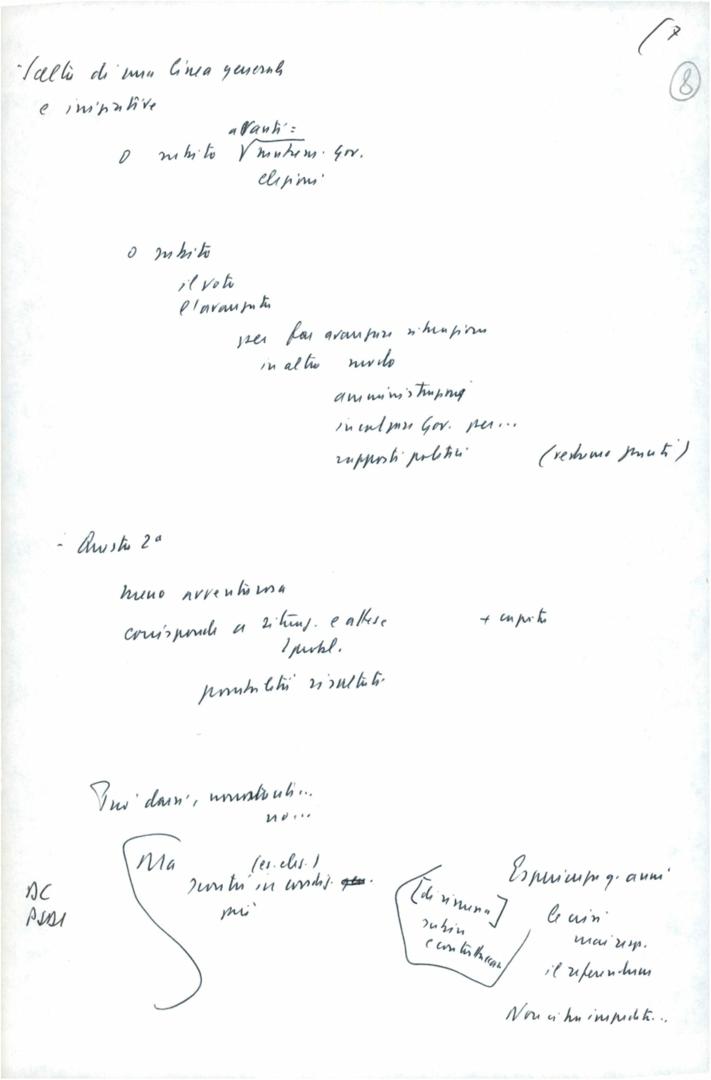 7
8
- Scelta di una linea generale
e iniziative
avanti =
o subito mutam. Gov.
elezioni
o subito
il voto
l'avanzata
per far avanzare situazione
in altro modo
amministrazioni
incalzare Gov. per...
rapporti politici (vedremo
- Questa 2ª
meno avventurosa
corrisponde a situaz. e attese + capito
probl.
possibilità risultati
Può darsi, nonostante...
no...
Ma (es. elez.)
scontri in condiz.
più
DC
PSDI
[di rimessa]
subire
e contrattaccare
Esperienze q. anni
le crisi
mai resp.
il referendum
Non ci ha impedito...